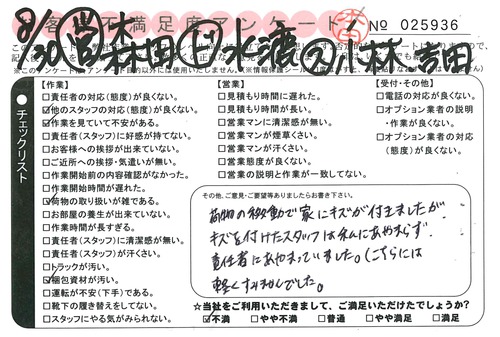 8/30 営 森田 上 水瀬 2 小林 吉田
客様不満足度アンケート
No 025936
チェックリスト
【作業】
□責任者の対応(態度)が良くない。
☑他のスタッフの対応(態度)が良くない。
☑作業を見ていて不安がある。
□責任者(スタッフ)に好感が持てない。
□お客様への挨拶が出来ていない。
□ご近所への挨拶・気遣いが無い。
□作業開始前の内容確認がなかった。
□作業開始時間が遅れた。
☑荷物の取り扱いが雑である。
□お部屋の養生が出来ていない。
□作業時間が長すぎる。
□責任者(スタッフ)に清潔感が無い。
□責任者(スタッフ)が汗くさい。
□トラックが汚い。
☑梱包資材が汚い。
□運転が不安(下手)である。
□靴下の履き替えをしてない。
□スタッフにやる気がみられない。
【営業】
□見積もり時間に遅れた。
□見積もり時間が長い。
□営業マンに清潔感が無い。
□営業マンが煙草くさい。
□営業マンが汗くさい。
□営業態度が良くない。
□営業の説明と作業が一致してない。
【受付・その他】
□電話の対応が良くない。
□オプション業者の説明
・作業が良くない。
□オプション業者の対応
(態度)が良くない。
その他、ご意見・ご要望等ありましたらお書き下さい。
荷物の移動で家にキズが付きましたが、
キズを付けたスタッフは私にあやまらず、
責任者にあやまっていました。(こちらには
軽くすみませんでした。
☆当社をご利用いただきまして、ご満足いただけたでしょうか?
☑不満 □やや不満 □普通 □やや満足 □満足